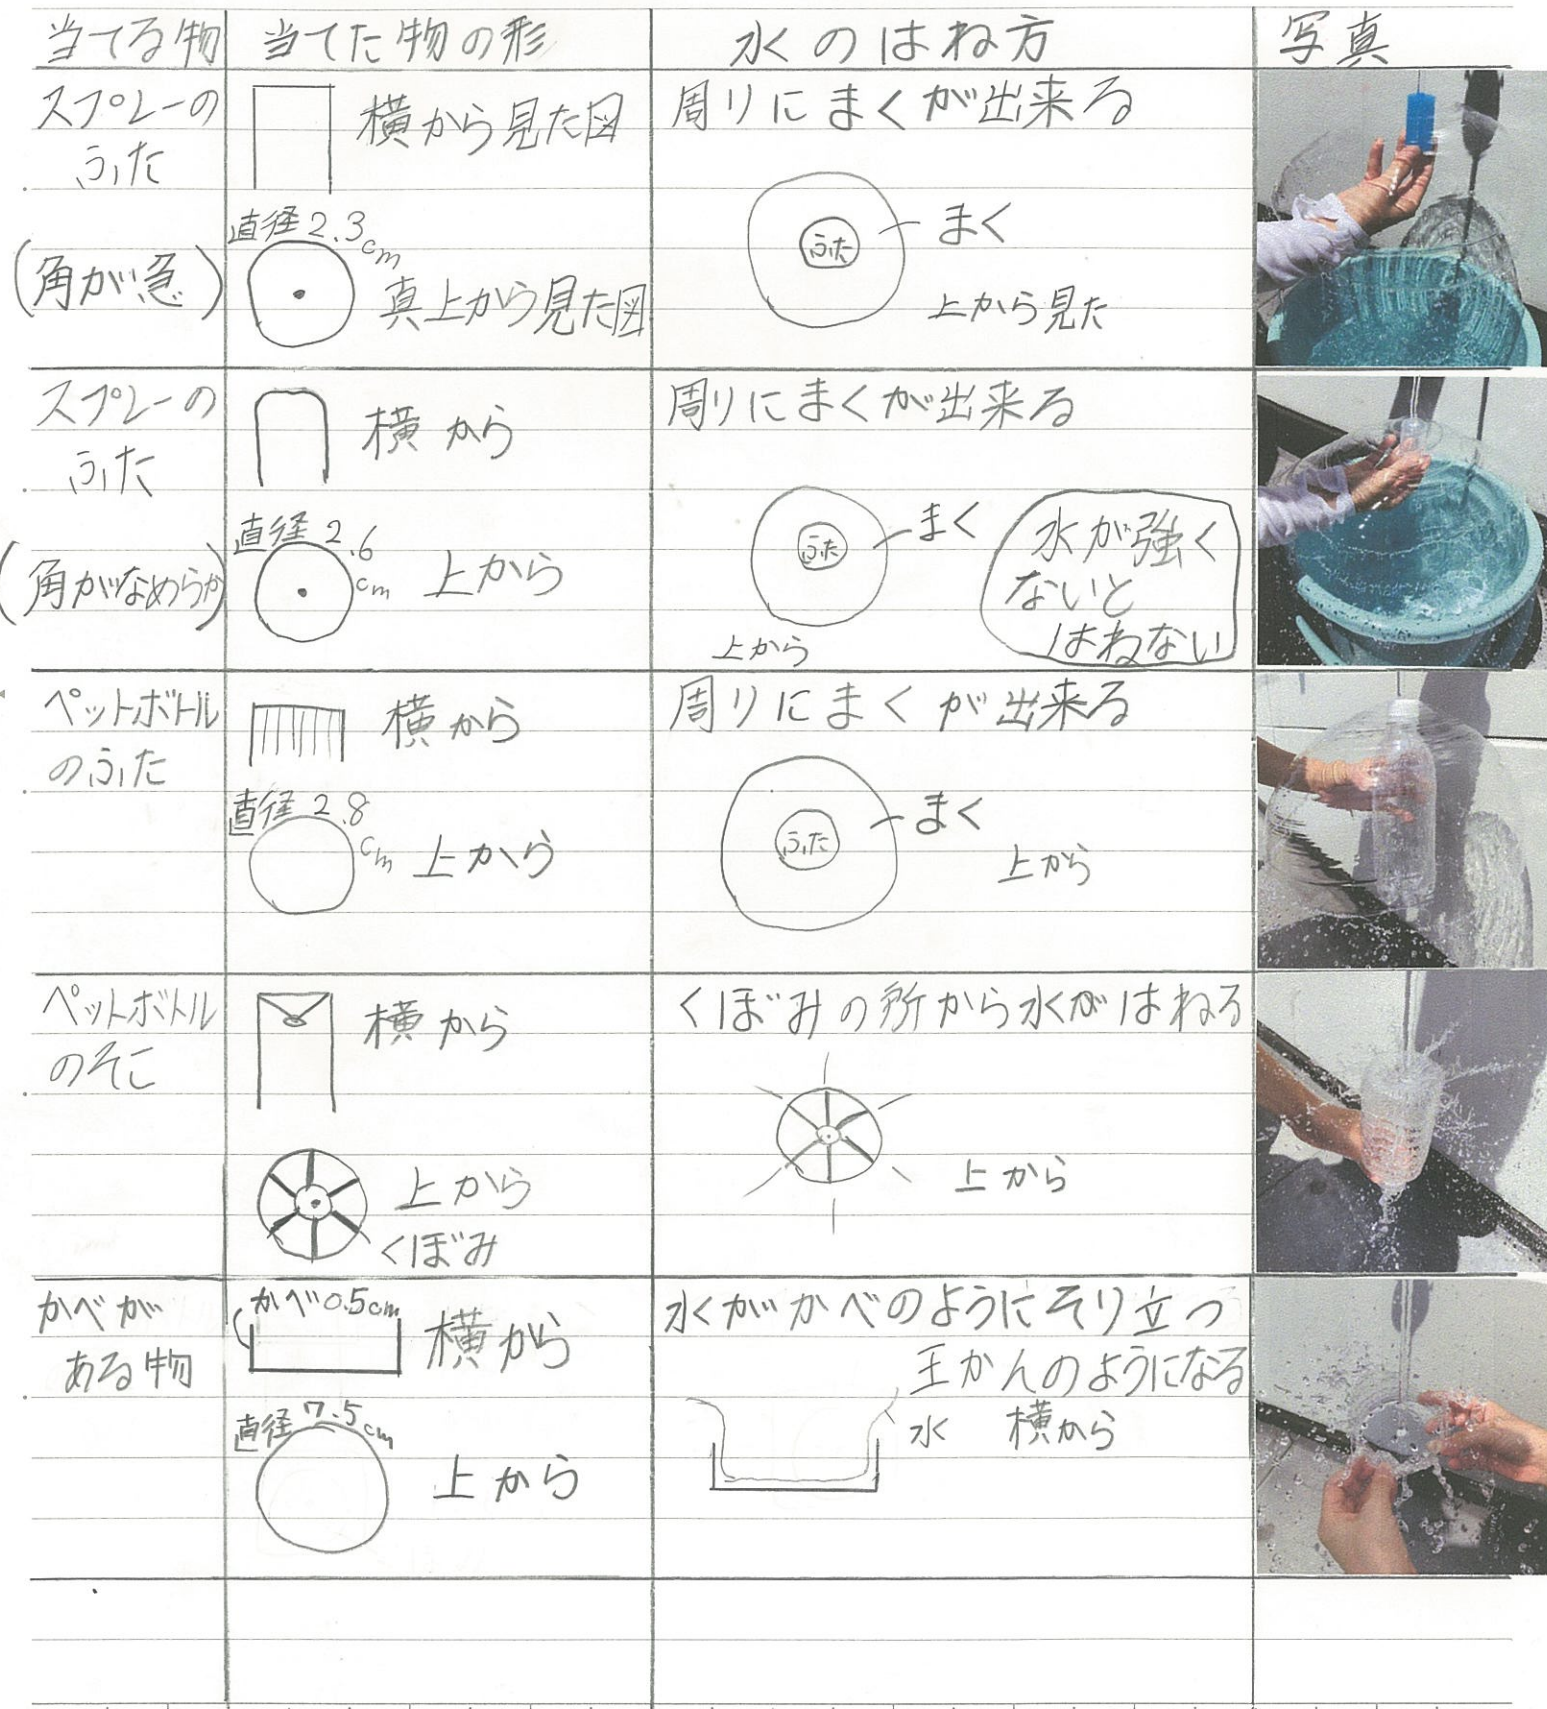 当てる物 当てた物の形 水のはね方 写真
スプレーの
ふた
(角が急)
横から見た図
直径2.3cm
真上から見た図
周りにまくが出来る
ふた
まく
上から見た
スプレーの
ふた
(角がなめらか)
横から
直径2.6cm
上から
周りにまくが出来る
ふた
まく
上から
水が強く
ないと
はねない
ペットボトル
のふた
横から
直径2.8cm
上から
周りにまくが出来る
ふた
まく
上から
ペットボトル
のそこ
横から
上から
くぼみ
くぼみの所から水がはねる
上から
かべが
ある物
かべ0.5cm
横から
直径7.5cm
上から
水がかべのようにそり立つ
王かんのようになる
水 横から